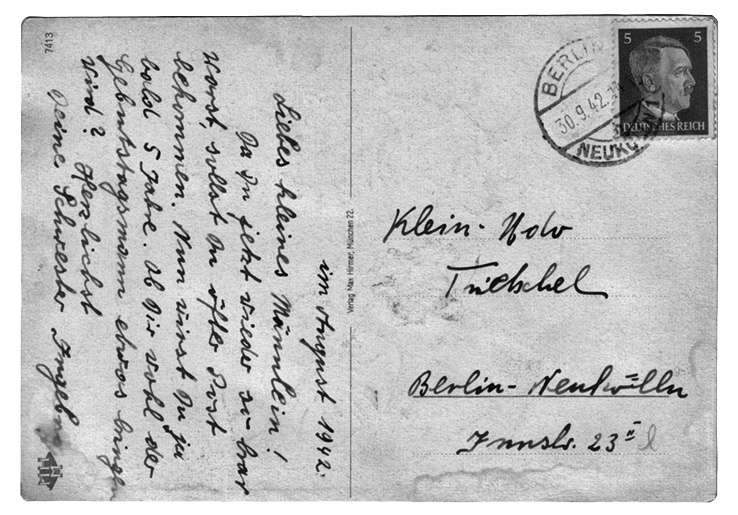 7413
im August 1942.
Liebes kleines Männlein!
Da Du jetzt wieder so brav
warst, sollst Du öfter Post
bekommen. Nun wirst Du ja
bald 5 Jahre. Ob Dir wohl der
Geburtstagsmann etwas bringen
wird? Herzlichst
Deine Schwester
Verlag Max Hirmer, München 22.
BERLIN
30.9.42.
5 5
DEUTSCHES REICH
Klein-Udo
Berlin-Neukölln
Innstr. 23 II